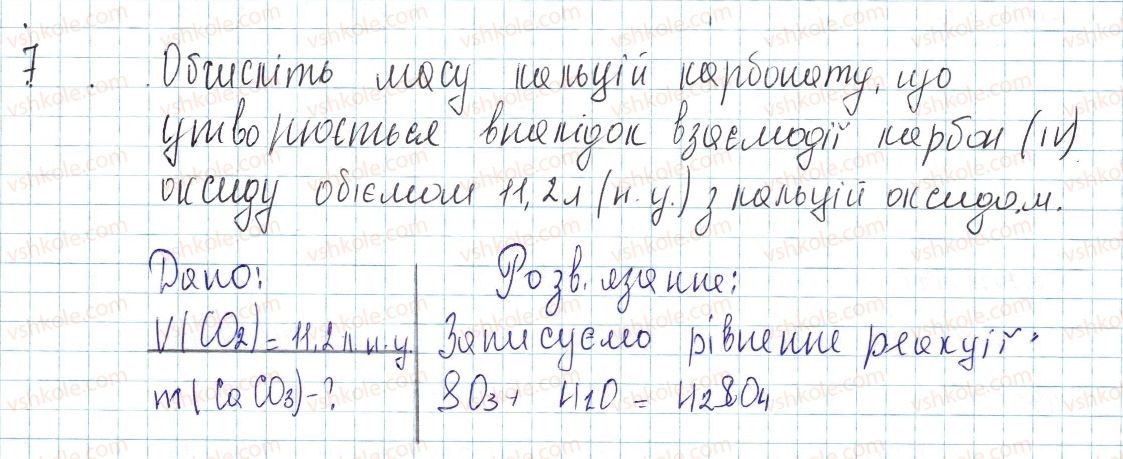 7. Обчисліть масу кальцій карбонату, що
утворюється внаслідок взаємодії карбон (IV)
оксиду об'ємом 11,2 л (н.у.) з кальцій оксидом.
Дано: Розв'язання:
V(CO₂) = 11,2 л н.у. Записуємо рівнення реакції:
m(CaCO₃) - ? SO₃ + H₂O = H₂SO₄
vshkole.com